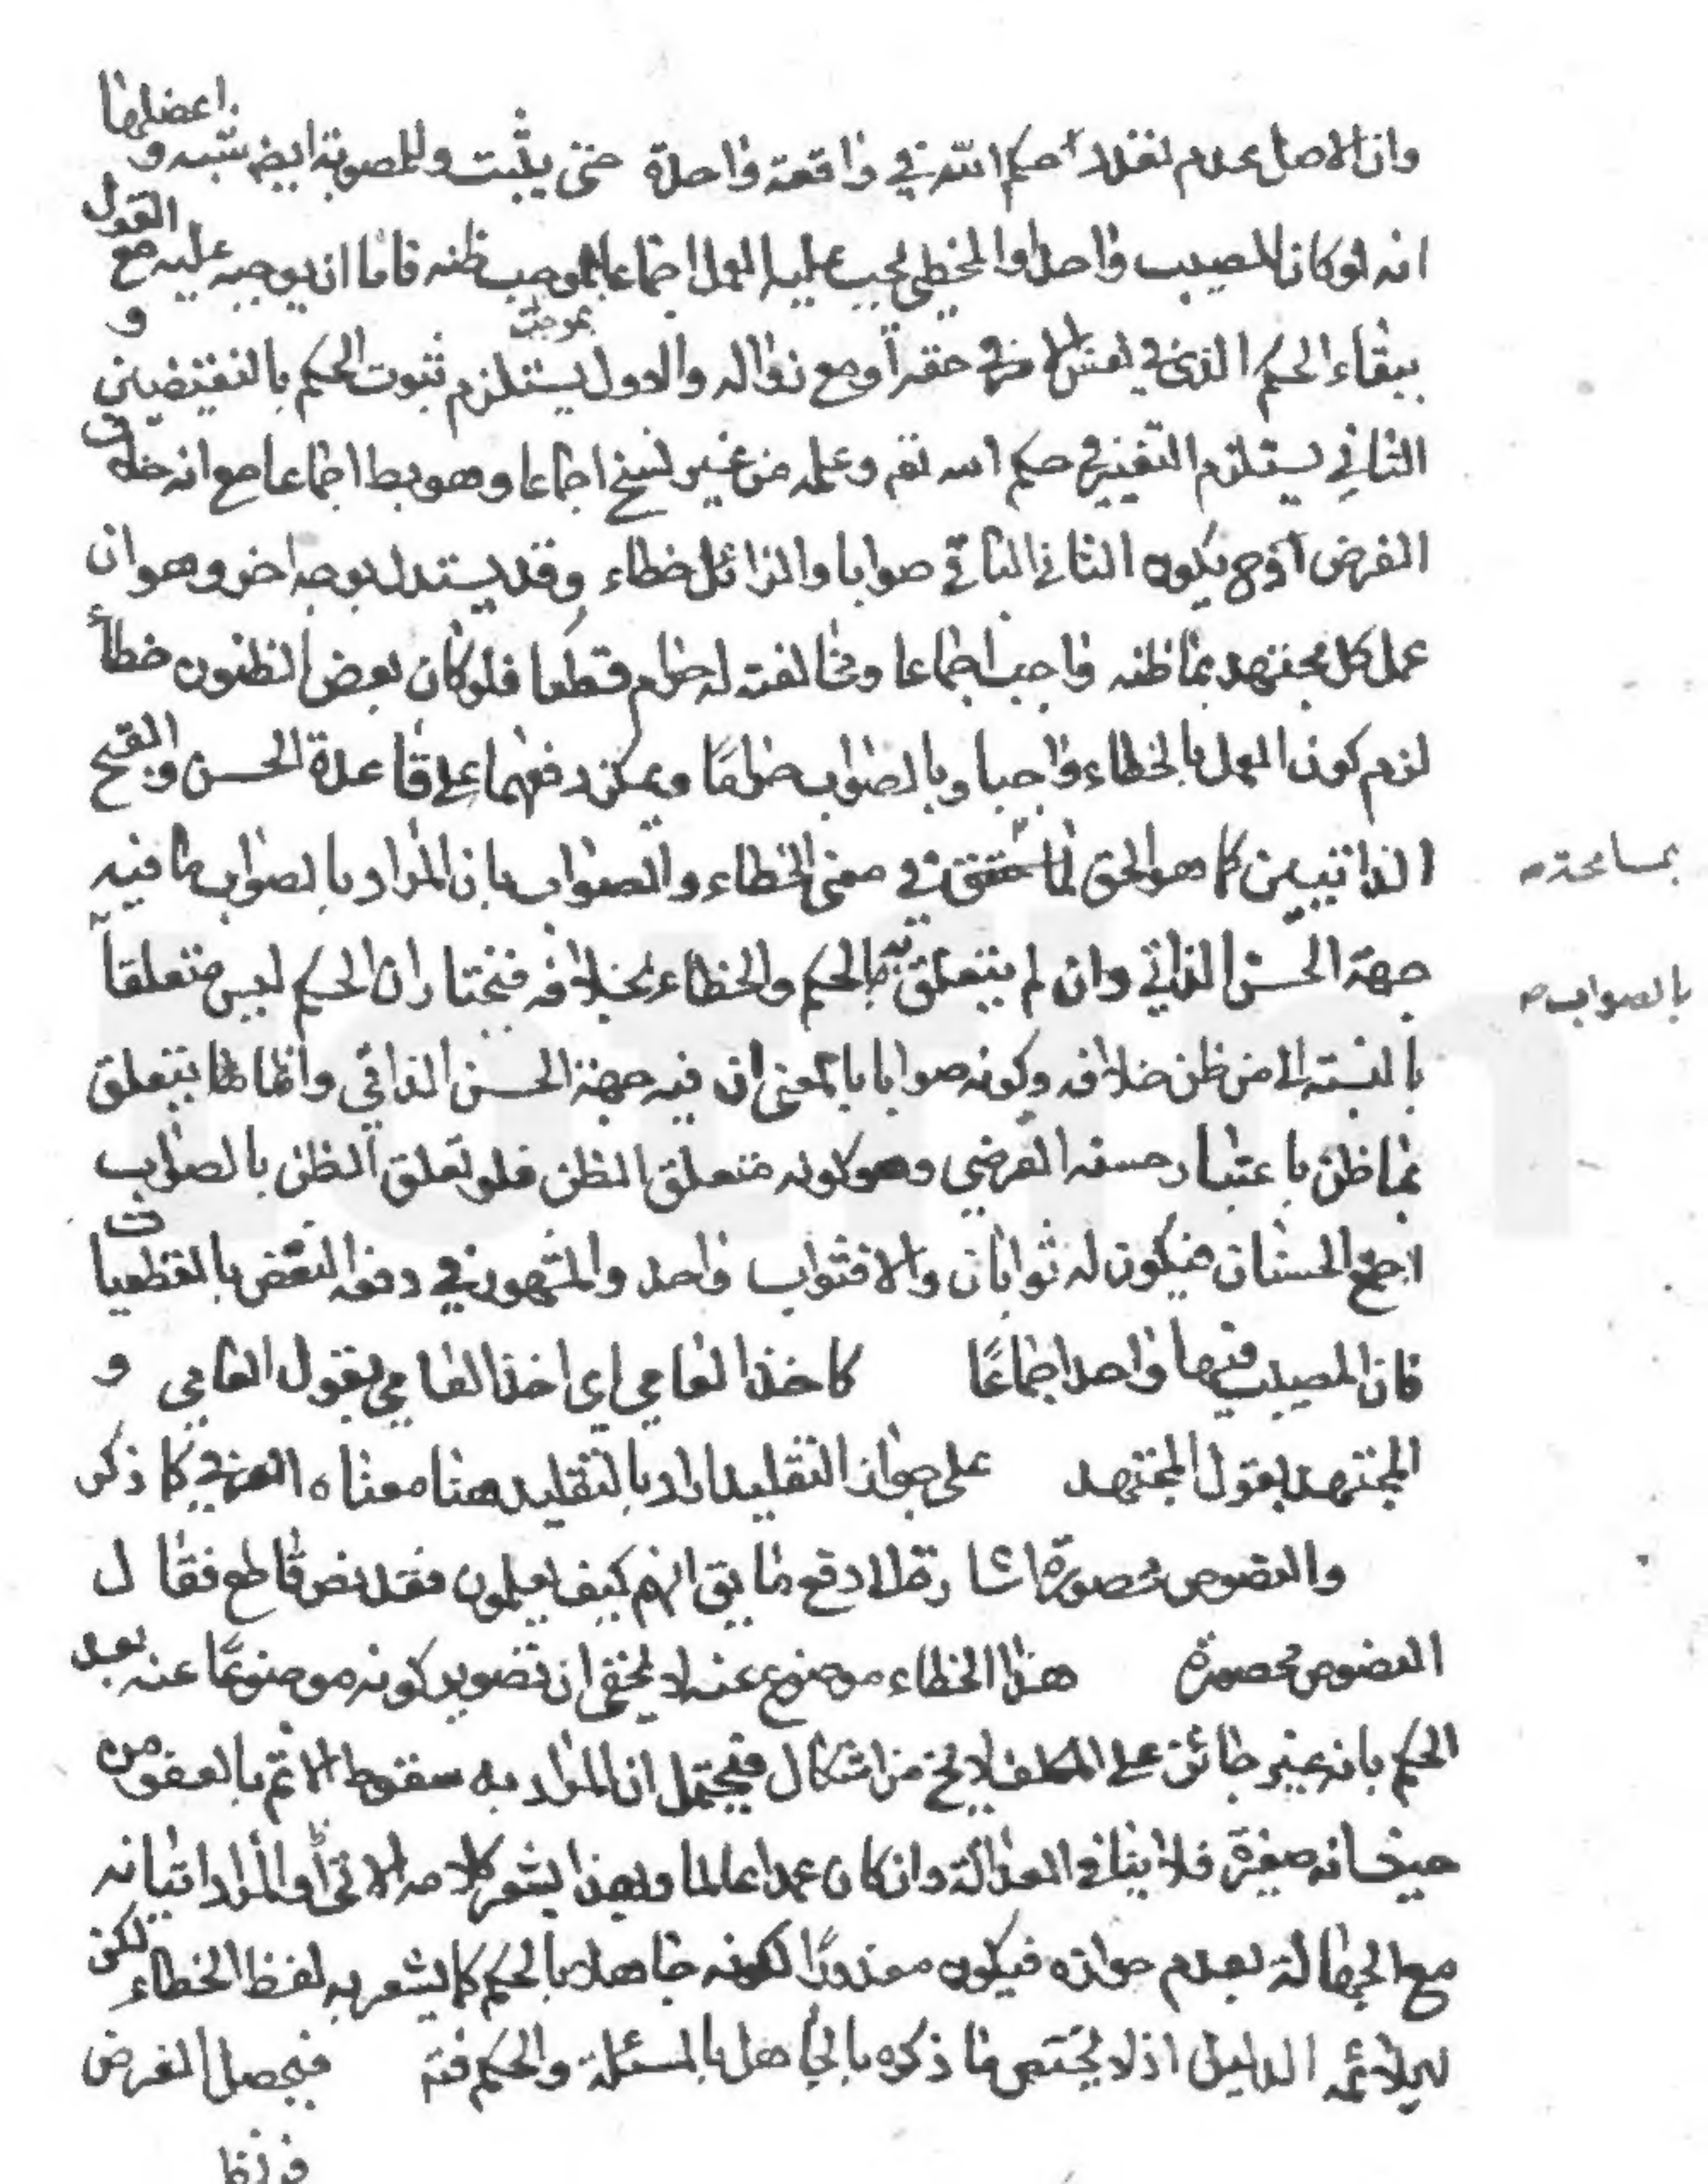 وان الاصل عدم تعدد حكم الله في واقعة واحدة حتى يثبت وللمصوبة ايض شبه و اعضلها
انه لو كان المصيب واحدا والمخطي يجب عليه العمل اجماعا بموجب ظنه فاما ان يوجبه عليه مع القول
ببقاء الحكم الذي في نفس الامر في حقه او مع زواله والاول يستلزم ثبوت الحكم بالنقيضين و
الثاني يستلزم التغيير في حكم الله تعم وعلمه من غير نسخ اجماعا وهو بط اجماعا مع انه خلاف
الفرض اذ ح يكون الثاني صوابا والزائل خطاء وقد يستدل بوجه اخر وهو ان
عمل كل مجتهد بما ظنه واجب اجماعا ومخالفته له حرام قطعا فلو كان بعض الظنون خطأ
لزم كون العمل بالخطاء واجبا وبالصواب حراما ويمكن دفعهما على قاعدة الحسن والقبح
الذاتيين كما هو الحق في معنى الخطاء والصواب بان المراد بالصواب ما فيه
بمسامحة
جهة الحسن الذاتي وان لم يتعلق به الحكم والخطاء بخلافه فنختار ان الحكم ليس متعلقا
بالصواب
بالنسبة الى من ظن خلافه وكونه صوابا بالمعنى ان فيه جهة الحسن الذاتي وانما يتعلق
بما ظن باعتبار حسنه العرضي وهو كونه متعلق الظن فلو تعلق الظن بالصواب
اجتمع الحسنان فيكون له ثوابان والا فثواب واحد والمشهور في دفعه النقض بالقطعيات
فان المصيب فيها واحد اجماعًا كاخذ العامي اي اخذ العامي بقول العامي و
المجتهد بقول المجتهد على جواز التقليد اراد بالتقليد هنا معناه العرفي كما ذكر
والنصوص محصورة اشارة الا دفع ما يق انهم كيف يعلمون فقد نص قاطع فقال
النصوص محصورة هذا الخطاء موضوع عنه لا يخفى ان تصوير كونه موضوعًا عنه بعد
الحكم بانه غير جائز على المكلف لا يخ من اشكال فيحتمل ان المراد به سقوط الاثم بالعفو من
حيث انه صغيرة فلا ينافي العدالة وان كان عمدا عالما وبهذا يشعر كلامه الاتي او المراد اتيانه
مع الجهالة بعدم جوازه فيكون معذورًا لكونه جاهلا بالحكم كما يشعر به لفظ الخطاء لكن
لا يلائمه الدليل اذ لا يختص ما ذكره بالجاهل بالمسئلة والحكم فتم فيحصل الغرض